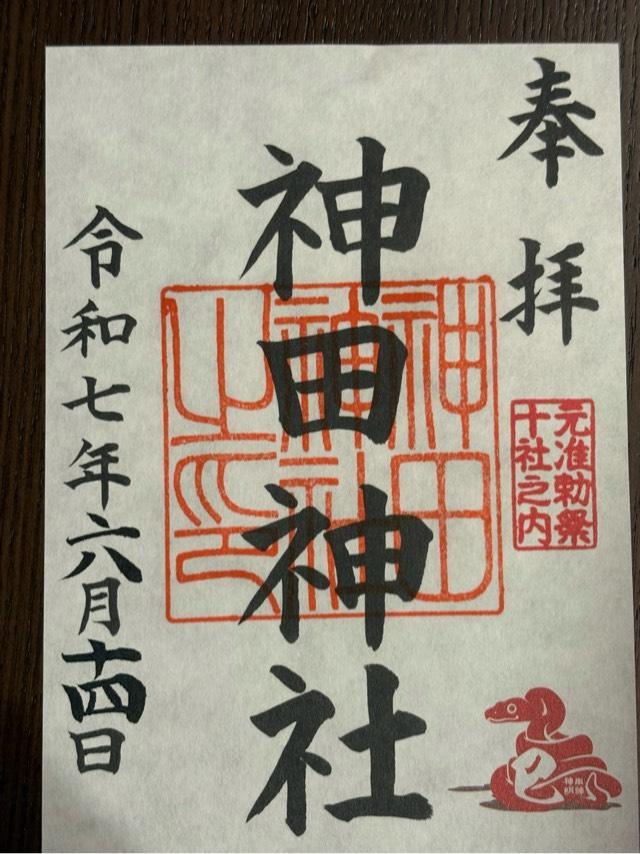 奉拝
元准勅祭
十社之内
神田神社
神田
神社
之印
令和七年六月十四日
巳